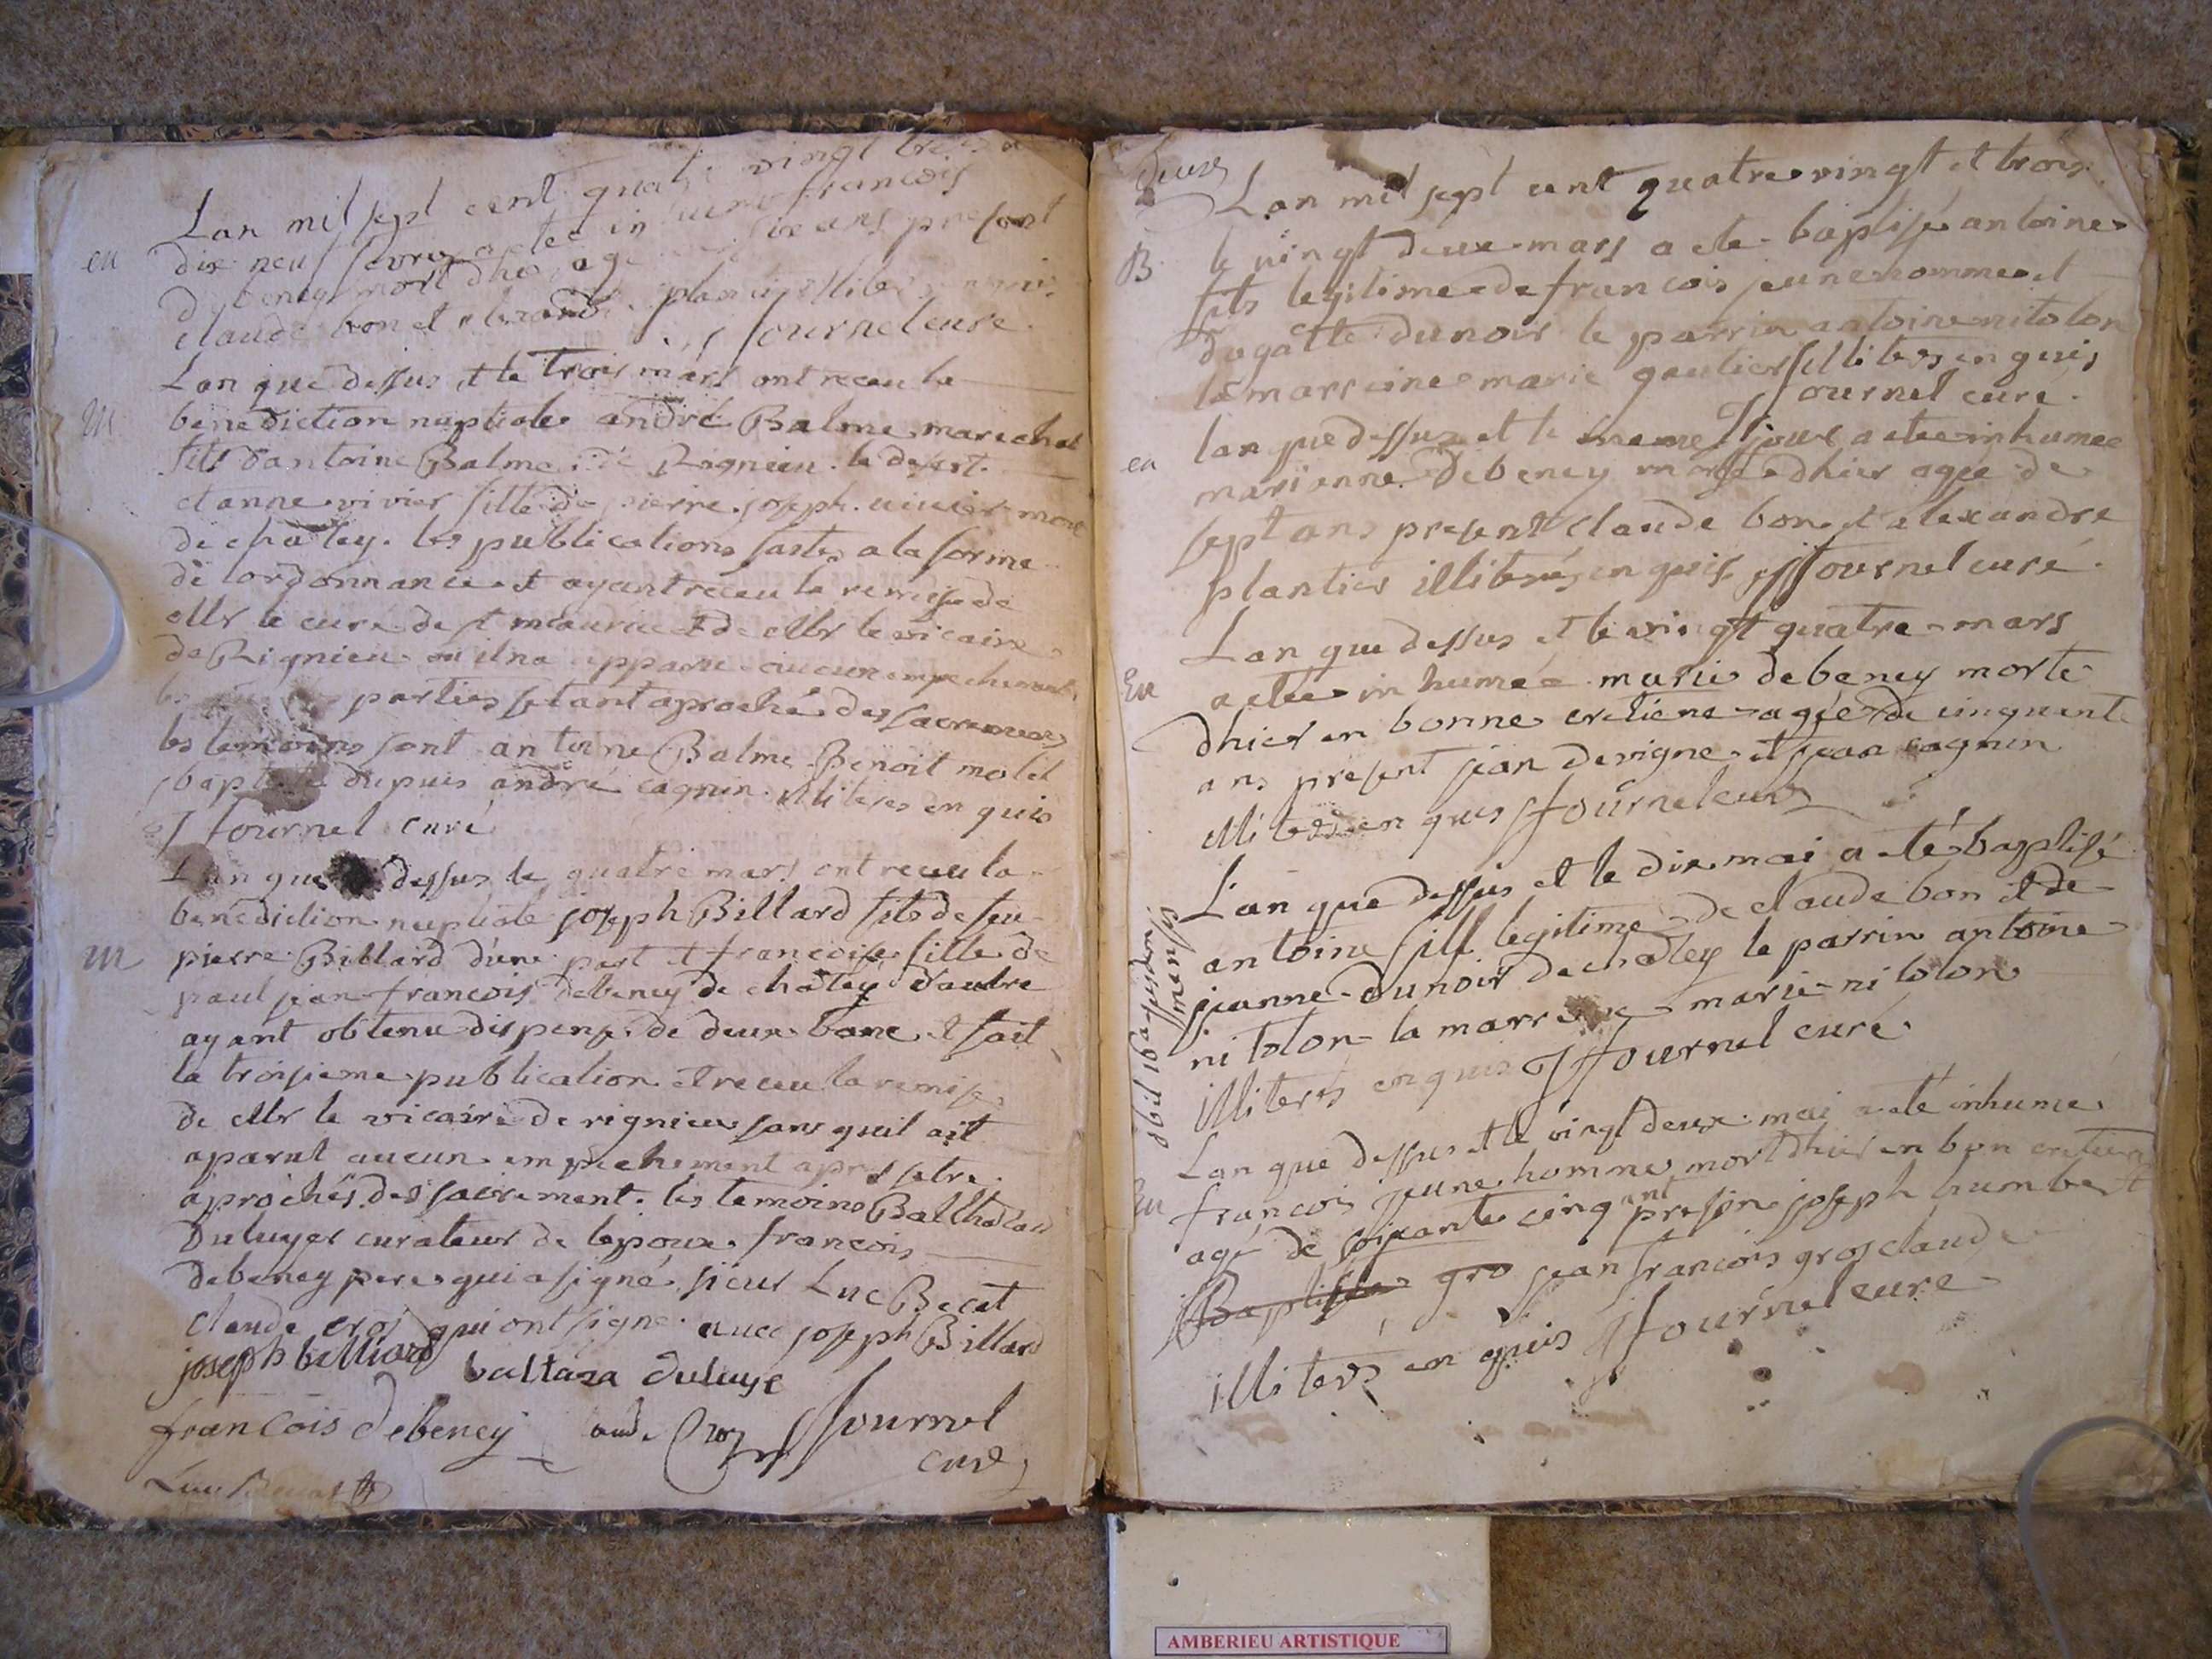 Lan mil sept cent quatre vingt trois
en
dix neuf fevrier a etee inhumé francois
debeney mort dhier age six ans present
claude bon et plantier illiteres enquis
fournel cure
Lan que dessus et le trois mars ont receu la
M
benediction nuptiale andré Balme marechal
fils dantoine Balme de Rignieu le desert
et anne vivier fille de pierre joseph vivier mort
de chatey. les publications faites a la forme
de lordonnance et ayant receu la remise de
Mr le curé de st maurice et de Mr le vicaire
de Rignieu ou il na apparu aucun empechement
les parties setant aproché des sacremens
les temoins sont antoine Balme Benoit molet
bapt dupuis andré cagnin illiteres en quis
fournel curé
Lan que dessus le quatre mars ont receu la
benediction nuptiale joseph Billard fils de feu
M
pierre Billard dune part et francoise fille de
paul jean francois debeney de chatey dautre
ayant obtenu dispense de deux banc et fait
la troisieme publication et receu la remise
de Mr le vicaire de rignieu sans quil ait
aparut aucun empechement apres setre
aprochés des sacrement. les temoins Balthazard
Duluyer curateur de lepoux francois
debeney pere qui a signé sieur Luc Becat
claude croz qui ont signe avec joseph Billard
joseph billiard
baltaza duluye
francois debeney
Croz
fournel
curé
Luc Becat
deux
Lan mil sept cent quatre vingt et trois
B
le vingt deux mars a ete baptisé antoine
fils legitime de francois jeune homme et
dagatte dunoir le parrin antoine nitolon
la marreine marie gautier illiteres enquis
fournel curé
lan que dessus et le meme jour a etee inhumee
en
marianne debeney morte dhier agée de
sept ans present claude bon et alexandre
plantier illiterés enquis fournel curé
Lan que dessus et le vingt quatre mars
En
a etée inhumée marie debeney morte
dhier en bonne cretiene agée de cinquante
ans present jean devigne et jean cagnin
illiteres en quis fournel curé
Lan que dessus et le dix mai a eté baptisé
antoine fill legitime de claude bon et de
jeanne dunoir de chatey le parrin antoine
nitolon la marreine marie nitolon
illiterés enquis fournel curé
obiit 16
mensis
Lan que dessus et le vingt deux mai a eté inhume
En
francois jeune homme mort dhier en bon cretien
agé de soixante cinq ans present joseph humbert
Baptiste gro jean francois gros claude
illiterés en quis fournel curé
AMBERIEU ARTISTIQUE